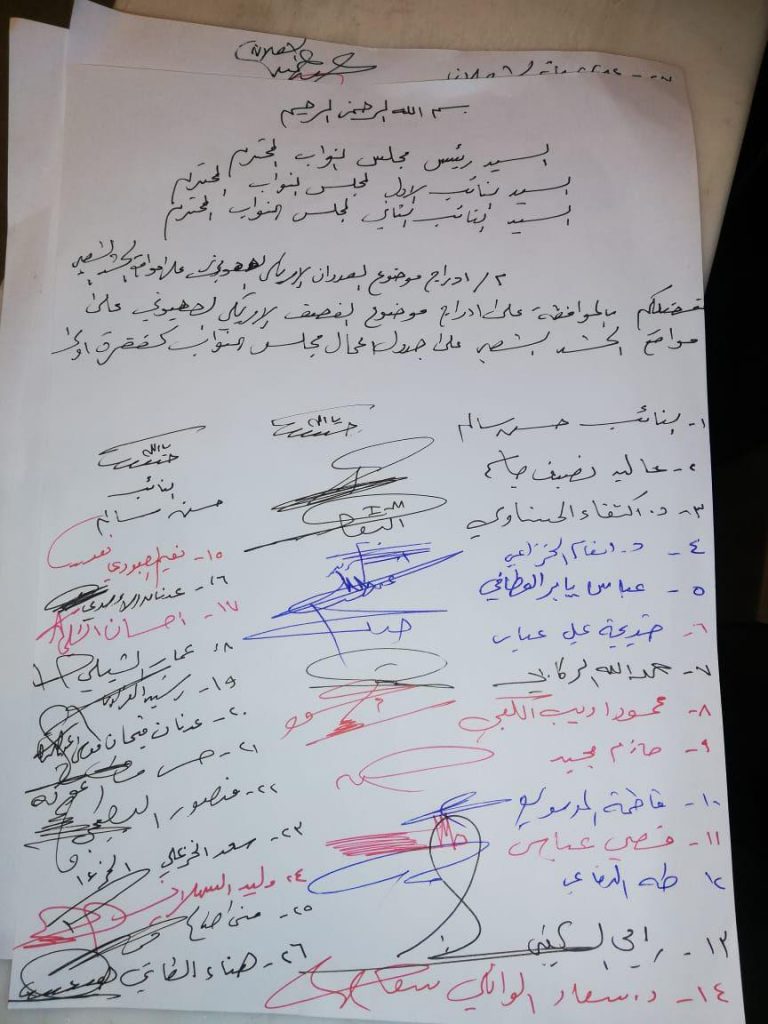 بسم الله الرحمن الرحيم
السيد رئيس مجلس النواب المحترم
السيد النائب الاول لمجلس النواب المحترم
السيد النائب الثاني لمجلس النواب المحترم
م / ادراج موضوع العدوان الامريكي الصهيوني على مواقع الحشد الشعبي
تفضلكم بالموافقة على ادراج موضوع القصف الامريكي الصهيوني على
مواقع الحشد الشعبي على جدول اعمال مجلس النواب كفقرة اولى
١- النائب حسن سالم
٢- عالية نصيف جاسم
٣- د. اكتفاء الحسناوي
٤- د. انعام الخزاعي
٥- عباس يابر العطافي
٦- خديجة علي عباس
٧- عبدالله الركابي
٨- محمود اديب الكعبي
٩- حازم مجيد
١٠- فاطمة الموسوي
١١- قصي عباس
١٢- طه الدفاعي
١٣- رامي السكيني
١٤- د. سعاد الوائلي
النائب
حسن سالم
١٥- نعيم العبودي
١٦- عبدالامير
١٧- احسان
١٨- عمار الشبلي
١٩- رشيد
٢٠- عدنان فيحان
٢١- حسن
٢٢- منصور البعيجي
٢٣- سعد الخزعلي
٢٤- وليد السهلاني
٢٥- منى
٢٦- هناء الطائي